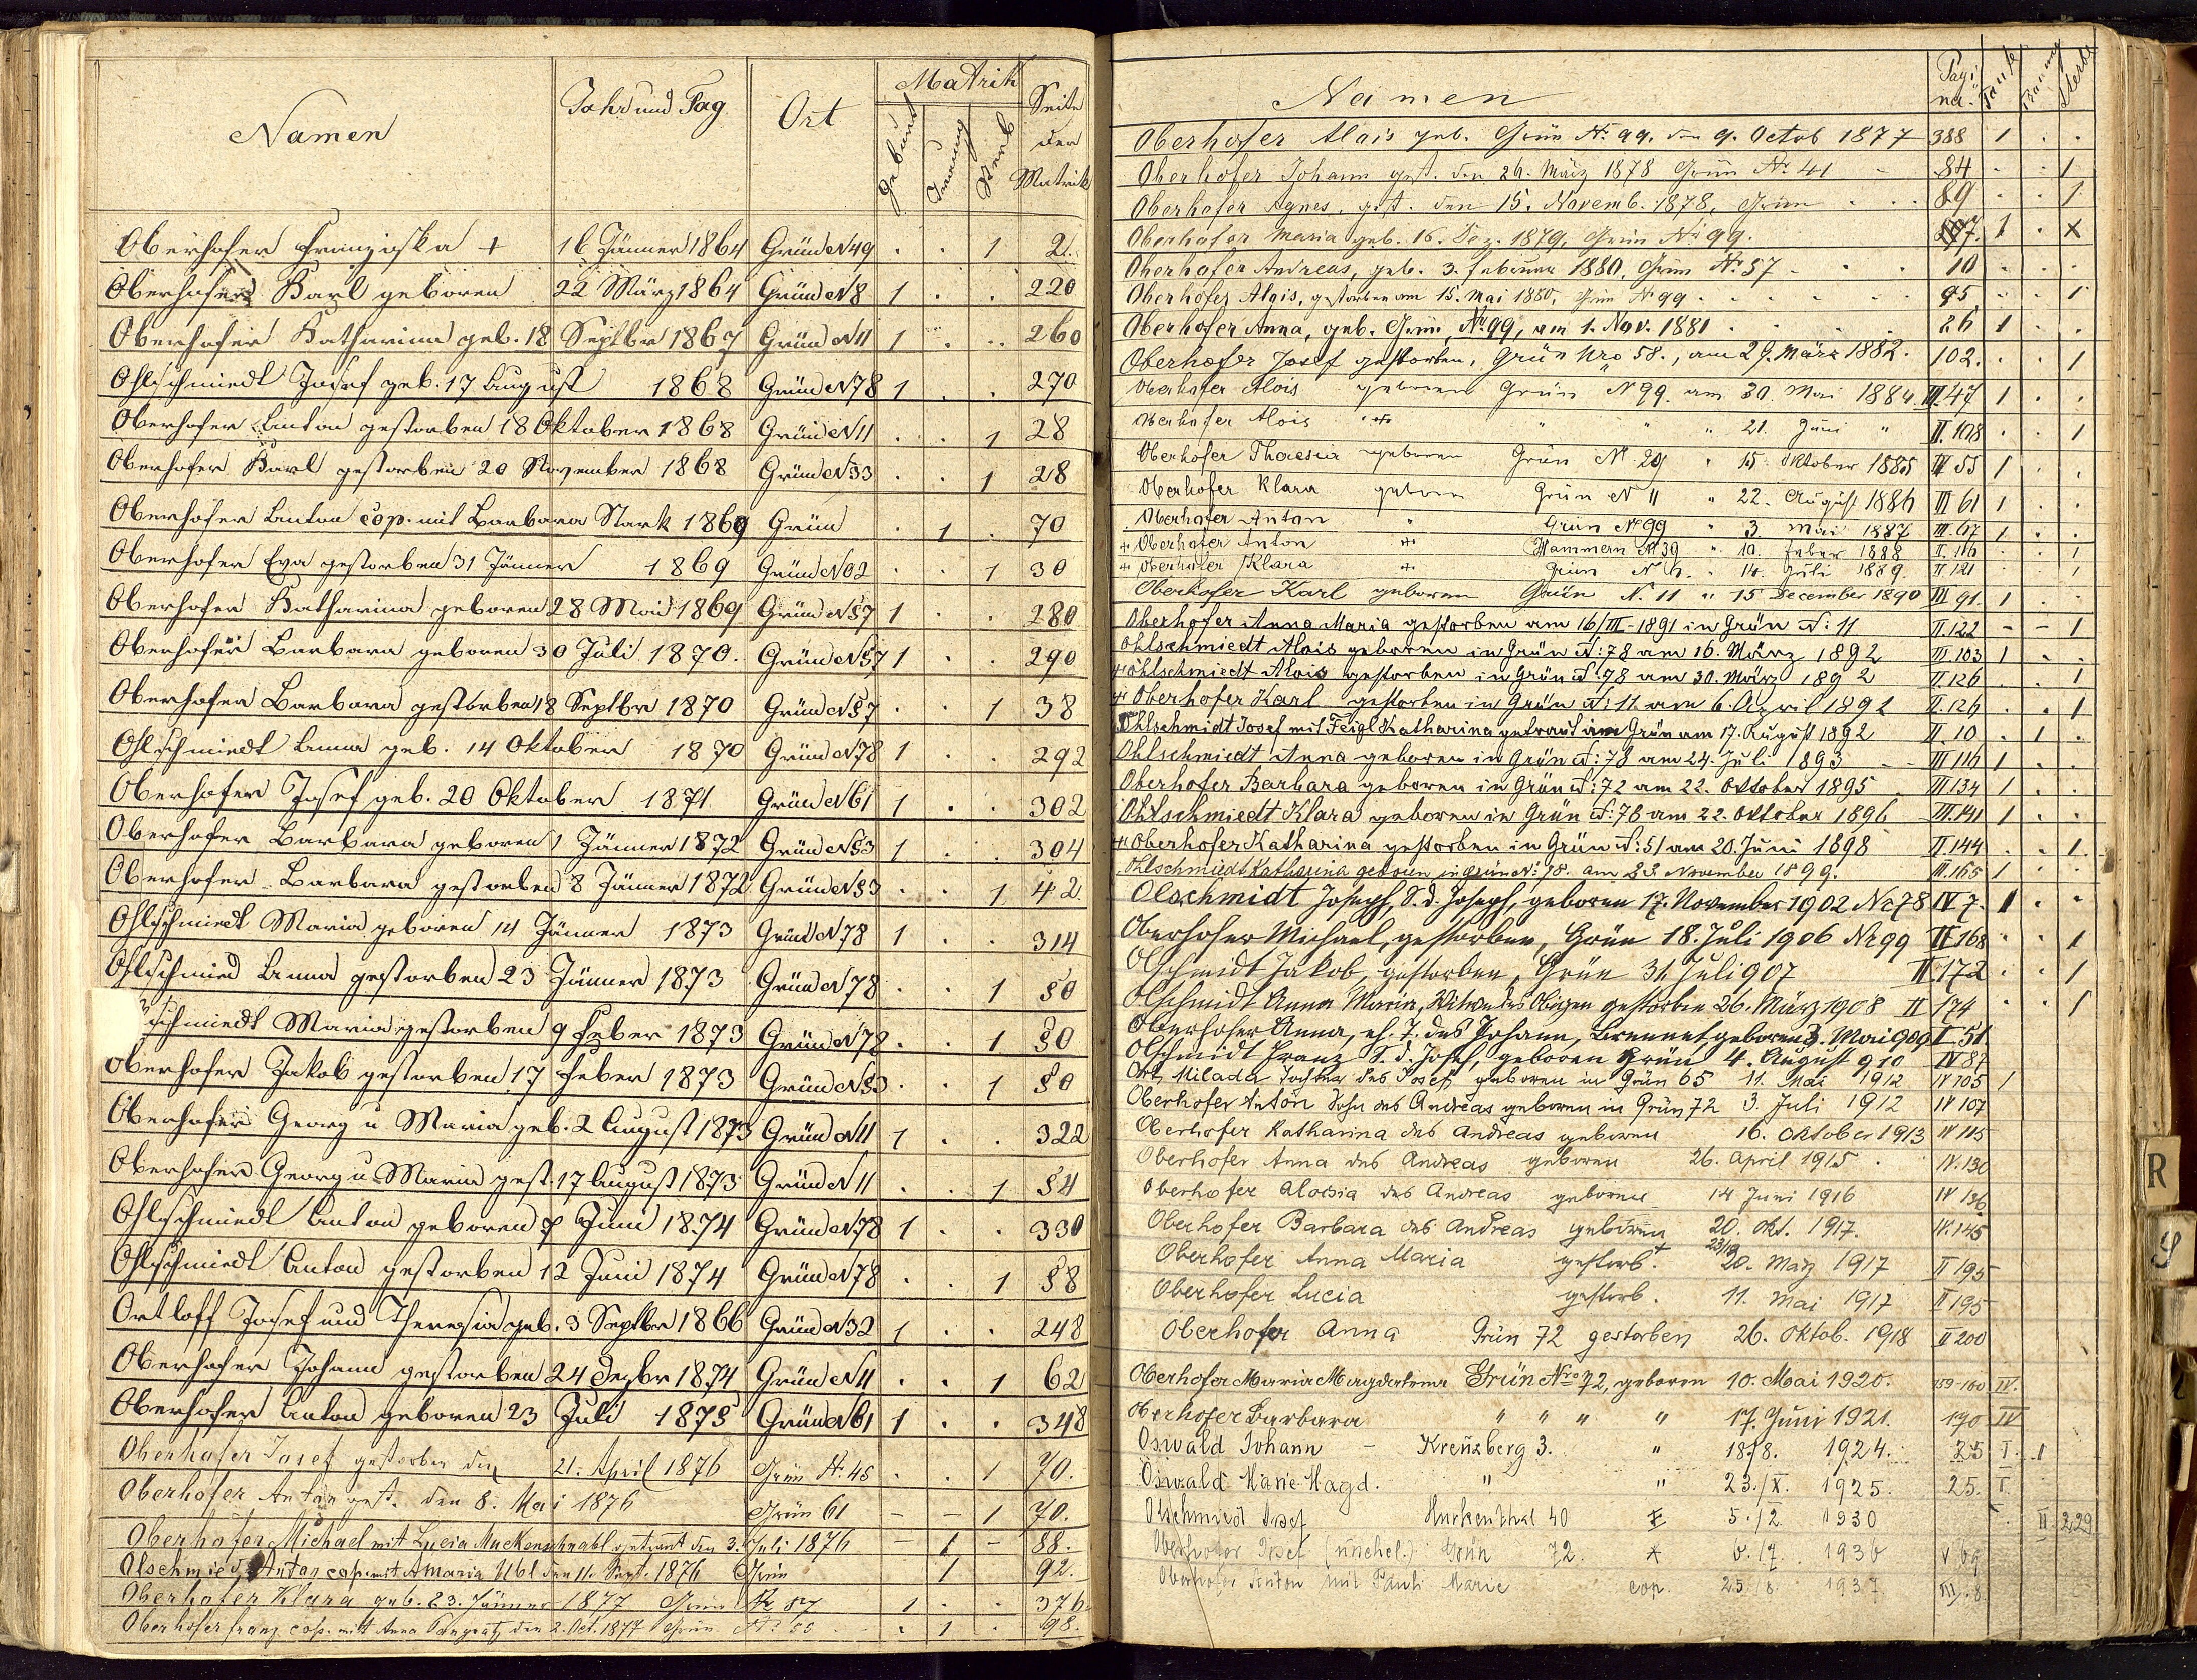 Namen Jahr und Tag Ort Matrik Seite der Matrik
Geburt Trauung Sterb
Oberhofer Franziska + 16 Jänner 1864 Grün N 49 . . 1 2.
Oberhofer Karl geboren 22 März 1864 Grün N 8 1 . . 220
Oberhofer Katharina geb. 18 Septbr 1867 Grün N 11 1 . . 260
Ohlschmiedt Josef geb. 17 August 1868 Grün N 78 1 . . 270
Oberhofer Anton gestorben 18 Oktober 1868 Grün N 11 . . 1 28
Oberhofer Karl gestorben 20 November 1868 Grün N 33 . . 1 28
Oberhofer Anton cop. mit Barbara Stark 1869 Grün . 1 . 70
Oberhofer Eva gestorben 31 Jänner 1869 Grün . . 1 30
Oberhofer Katharina geboren 28 Mai 1869 Grün N 57 1 . . 280
Oberhofer Barbara geboren 30 Juli 1870. Grün N 57 1 . . 290
Oberhofer Barbara gestorben 18 Septbr 1870 Grün N 57 . . 1 38
Ohlschmiedt Anna geb. 14 Oktober 1870 Grün N 78 1 . . 292
Oberhofer Josef geb. 20 Oktober 1871 Grün N 61 1 . . 302
Oberhofer Barbara geboren 1 Jänner 1872 Grün N 53 1 . . 304
Oberhofer Barbara gestorben 8 Jänner 1872 Grün N 53 . . 1 42.
Ohlschmiedt Maria geboren 14 Jänner 1873 Grün N 78 1 . . 314
Ohlschmied Anna gestorben 23 Jänner 1873 Grün N 78 . . 1 50
schmiedt Maria gestorben 9 Feber 1873 Grün N 78 . . 1 50
Oberhofer Jakob gestorben 17 Feber 1873 Grün N 53 . . 1 50
Oberhofer Georg u Maria geb. 2 August 1873 Grün N 11 1 . . 322
Oberhofer Georg u Maria gest. 17 August 1873 Grün N 11 . . 1 54
Ohlschmiedt Anton geboren 7 Juni 1874 Grün N 78 1 . . 330
Ohlschmiedt Anton gestorben 12 Juni 1874 Grün N 78 . . 1 58
Ortloff Josef und Theresia geb. 3 Septbr 1866 Grün N 32 1 . . 248
Oberhofer Johann gestorben 24 Dezbr 1874 Grün N 11 . . 1 62
Oberhofer Anton geboren 23 Juli 1875 Grün N 61 1 . . 348
Oberhofer Josef gestorben den 21. April 1876 Grün Nr 45 . . 1 70.
Oberhofer Anton gest. den 8. Mai 1876 Grün 61 – – 1 70.
Oberhofer Michael mit Lucia Muckenschnabl getraut den 3. Juli 1876 – 1 – 88.
Olschmied Anton cop. mit A Maria Ubl den 11. Sept. 1876 Grün 1 92.
Oberhofer Klara geb. 23. Jänner 1877 Grün Nr 57 1 . . 376.
Oberhofer Franz cop. mit Anna Pangratz den 2. Oct. 1877 Grün . 1 . 98.
Namen Pagina Taufe Trauung Sterbe
Oberhofer Alois geb. Grün Nr 99. den 9. Octob 1877 388 1 . .
Oberhofer Johann gest. den 26. März 1878 Grün Nr 41 84 . . 1
Oberhofer Agnes. gest. den 15. Novemb. 1878, Grün 89 . . 1
Oberhofer Maria geb. 16. Dez. 1879, Grün Nr 99. 1 . x
Oberhofer Andreas, geb. 3. Februar 1880, Grün Nr 57 10 . . .
Oberhofer Alois, gestorben am 15. Mai 1880, Grün Nr 99 95 . . 1
Oberhofer Anna, geb. Grün, Nr 99, am 1. Nov. 1881 26 1 . .
Oberhofer Josef gestorben, Grün Nro 58., am 29. März 1882. 102. . . 1
Oberhofer Alois geboren Grün N 99. am 30. Mai 1884 III. 47 1 . .
Oberhofer Alois + " " " 21. Juni " II. 108 . . 1
Oberhofer Theresia geboren Grün N. 29 " 15. Oktober 1885 III 55 1 . .
Oberhofer Klara geboren Grün N 11 " 22. August 1886 III 61 1 . .
Oberhofer Anton " Grün N 99 " 3. Mai 1887 III. 67 1 . .
+ Oberhofer Anton + Hammern N 39 " 10. Feber 1888 II. 116 . . 1
+ Oberhofer Klara + Grün N 11. " 14. Juli 1889. II. 121 1
Oberhofer Karl geboren Grün N. 11 " 15 December 1890 III 91. 1 . .
Oberhofer Anna Maria gestorben am 16/III - 1891 in Grün N: 11 II. 122 - - 1
Ohlschmiedt Alois geboren in Grün N: 78 am 16. März 1892 III 103 1 . .
+ Ohlschmiedt Alois gestorben in Grün N: 78 am 30. März 1892 II. 126 . . 1
+ Oberhofer Karl gestorben in Grün N: 11 am 6. April 1892 II. 126 . . 1
Ohlschmidt Josef mit Feigl Katharina getraut in Grün am 17. August 1892 II. 10 . 1 .
Ohlschmiedt Anna geboren in Grün N: 78 am 24. Juli 1893 III 116 1 . .
Oberhofer Barbara geboren in Grün N: 72 am 22. Oktober 1895 III. 134 1 . .
Ohlschmiedt Klara geboren in Grün N: 78 am 22. Oktober 1896 III. 141 1 . .
+ Oberhofer Katharina gestorben in Grün N: 51 am 20. Juni 1898 II. 144 . . 1.
Ohlschmiedt Katharina geboren in Grün N: 78. am 23. November 1899. III. 165 1 . .
Olschmidt Joseph, S. d. Joseph, geboren 17. November 1902 Nr 78 IV 7. 1 . .
Oberhofer Michael, gestorben, Grün 18. Juli 1906 Nr 99 II 168 . . 1
Olschmidt Jakob, gestorben, Grün 31. Juli 907 II 172 . . 1
Olschmidt Anna Maria, Witwe des Obigen gestorben 26. März 1908 II 174 . . 1
Oberhofer Anna, eh. T. des Johann, Brennet geboren 3. Mai 909 I 51
Olschmidt Franz S. d. Josef, geboren Grün 4. August 910 IV 87
Ort Milada Tochter des Josef geboren in Grün 65 11. Mai 1912 IV 105 1
Oberhofer Anton Sohn des Andreas geboren in Grün 72 3. Juli 1912 IV 107
Oberhofer Katharina des Andreas geboren 16. Oktober 1913 IV 115
Oberhofer Anna des Andreas geboren 26. April 1915 . IV. 130
Oberhofer Aloisia des Andreas geboren 14 Juni 1916 IV 136.
Oberhofer Barbara des Andreas geboren 20. Okt. 1917. IV. 145
Oberhofer Anna Maria gestorb. + 20. März 1917 II 195
Oberhofer Lucia gestorb. 11. Mai 1917 II 195
Oberhofer Anna Grün 72 gestorben 26. Oktob. 1918 II 200
Oberhofer Maria Magdalena Grün Nro 72, geboren 10. Mai 1920. 159-160 IV.
Oberhofer Barbara " " " " 17. Juni 1921. 170 IV
Oswald Johann – Kreuzberg 3. " 18/8. 1924. 25 I. 1
Oswald Marie Magd. " " 23./X. 1925. 25. I.
Olschmiedt Josef Hurkenthal 40 5./2. 1930 II 229
Oberhofer Josef (unehel.) Grün 72. * 6./7. 1936 V 69
Oberhofer Anton mit Pauli Marie cop. 25./8. 1937 III. 8.
R
S